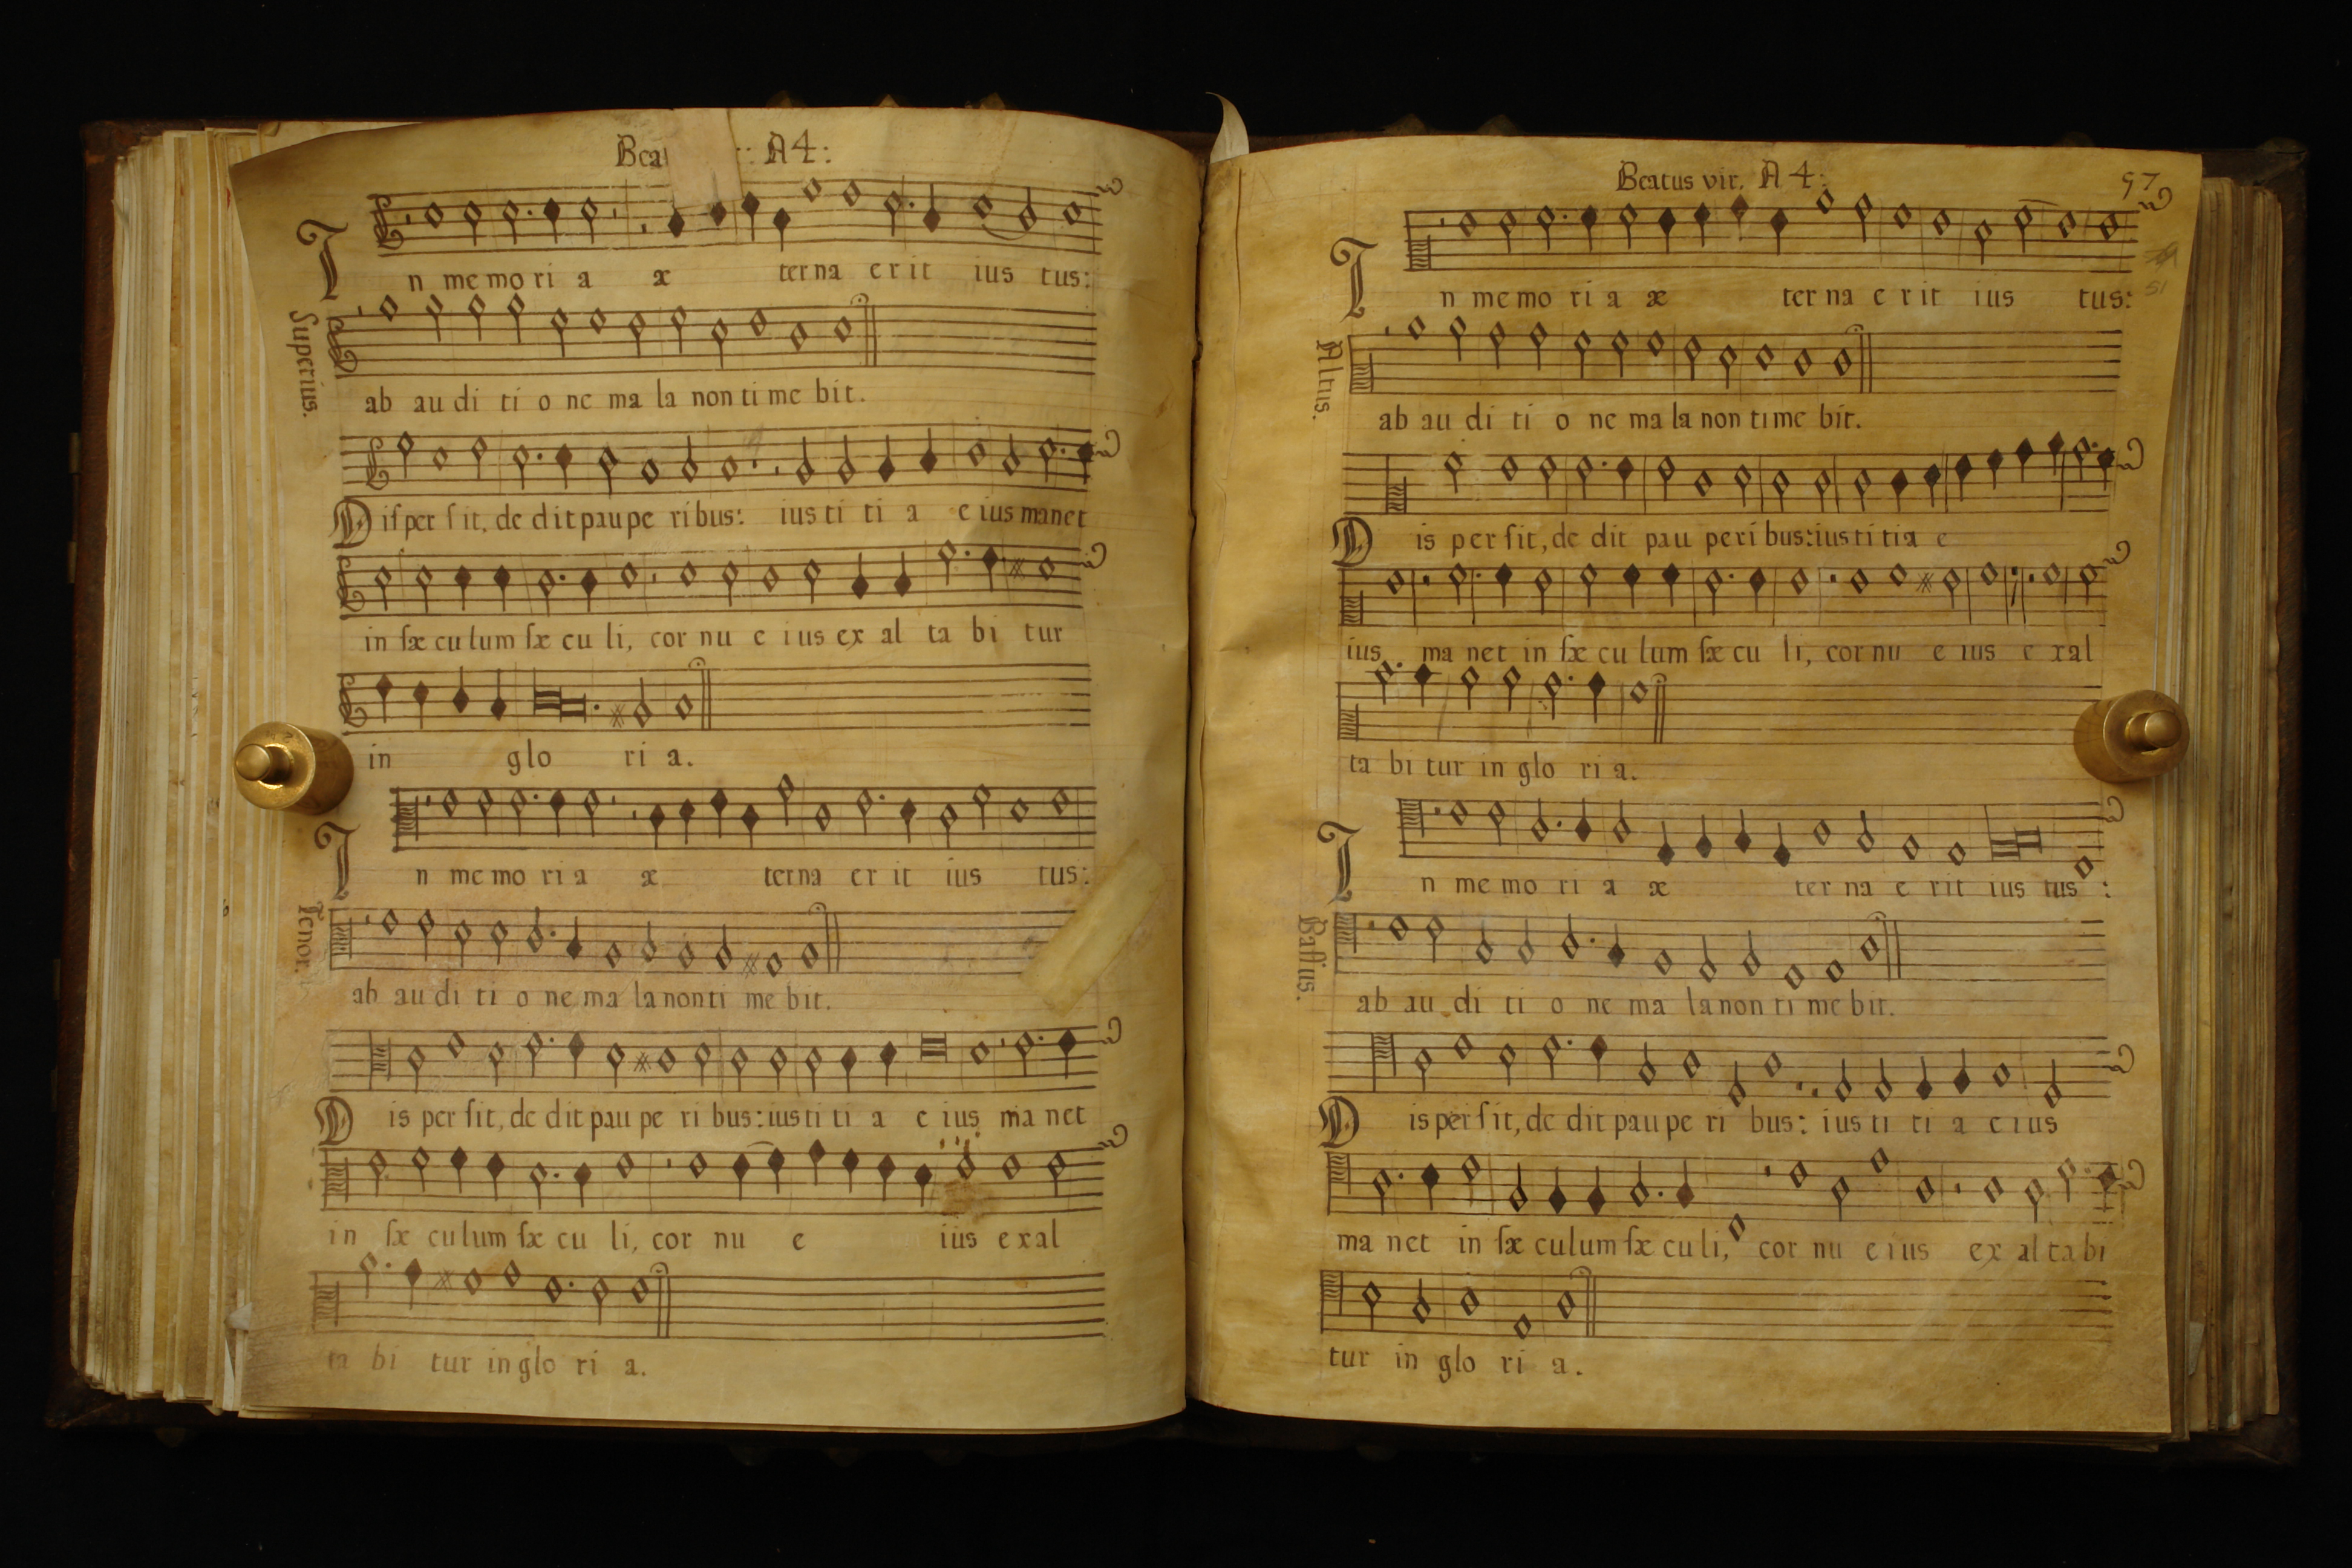 Bea :: A 4:
In me mo ri a æ ter na e r it ius tus:
Superius.
ab au di ti o ne ma la non ti me bit.
Disper sit, de dit pau pe ri bus: ius ti ti a e ius manet
in sæ cu lum sæ cu li, cor nu e ius ex al ta bi tur
in glo ri a.
In me mo ri a æ ter na er it ius tus:
Tenor.
ab au di ti o ne ma la non ti me bit.
Dis per sit, de dit pau pe ri bus: ius ti ti a e ius ma net
in sæ cu lum sæ cu li, cor nu e iüs e xal
ta bi tur in glo ri a.
Beatus vir. A 4:
97
51
In me mo ri a æ ter na e r it ius tus:
Altus.
ab au di ti o ne ma la non ti me bit.
Dis per sit, de dit pau pe ri bus: ius ti tia e
ius ma net in sæ cu lum sæ cu li, cor nu e ius e xal
ta bi tur in glo ri a.
In me mo ri a æ ter na e rit ius tus:
Bassus.
ab au di ti o ne ma la non ti me bit.
Dis per sit, de dit pau pe ri bus: ius ti ti a e ius
ma net in sæ cu lum sæ cu li, cor nu e ius ex al ta bi
tur in glo ri a.